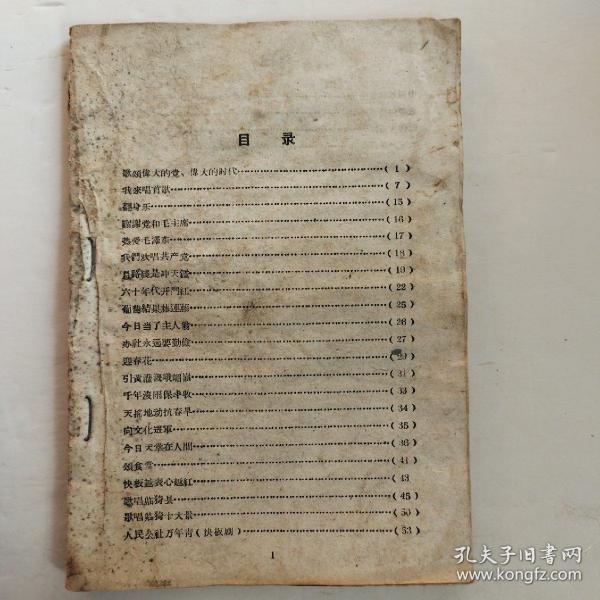 目 录
歌頌偉大的党、偉大的时代……………………( 1 )
我来唱首歌……………………( 7 )
翻身乐……………………( 15 )
謝謝党和毛主席……………………( 16 )
热爱毛澤东……………………( 17 )
我們欢唱共产党……………………( 18 )
总路綫是冲天……………………( 19 )
六十年代开門紅……………………( 22 )
葡萄結果……………………( 25 )
今日当了主人翁……………………( 26 )
办社永远要勤儉……………………( 27 )
迎春花……………………( )
引黃灌溉峨嵋嶺……………………( 31 )
千年……………………( 33 )
天搖地动抗春旱……………………( 34 )
向文化进軍……………………( 35 )
今日天堂在人間……………………( 36 )
頌食堂……………………( 41 )
快板越表心越紅……………………( 43
歌唱臨猗县……………………( 45 )
歌唱臨猗十大景……………………( 50 )
人民公社万年青( 快板剧 )……………………( 53 )
1
孔夫子旧書网
www.kongfz.com